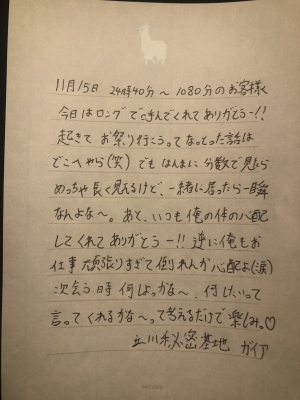 11月15日 24時40分〜1080分のお客様へ
今日はロングで呼んでくれてありがとうー!!
起きてお祭り行こうってなっとった話は
どこへやら(笑) でもほんまに分数で見たら
めっちゃ長く見えるけど、一緒に居ったら一瞬
なんよな〜。あと、いつも俺の体の心配
してくれてありがとうー!! 逆に俺もお
仕事頑張りすぎて倒れんか心配よ(涙)
次会う時何しよっかな〜、何したいって
言ってくれるかな〜って考えるだけで楽しみ。♡
立川秘密基地 ガイア